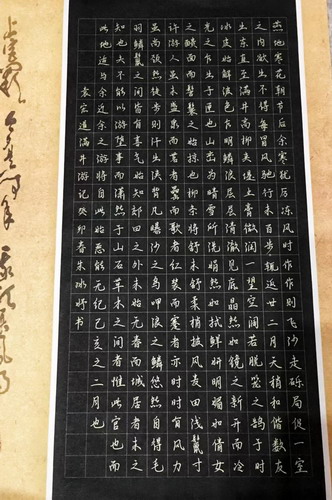 燕地寒花朝节后余寒犹厉冻风时作作则飞沙走砾局促一室
之内欲出不得每冒风驰行未百步辄返廿二月天稍和偕数友
出东直至满井高柳夹堤土膏微润一望空阔若脱笼之鹄于时
冰皮始解波色乍明鳞浪层层清澈见底晶晶然如镜之新开而冷
光之乍出于匣也山峦为晴雪所洗娟然如拭鲜妍明媚如倩女
之靧面而髻鬟之始掠也柳条将舒未舒柔梢披风麦田浅鬣寸
许游人虽未盛泉而茗者罍而歌者红装而蹇者亦时时有风力
虽尚劲然徒步则汗出浃背凡曝沙之鸟呷浪之鳞悠然自得毛
羽鳞鬣之间皆有喜气始知郊田之外未始无春而城居者未之
知也夫不能以游堕事而潇然于山石草木之间者惟此官也而
此地适与余近余之游将自此始恶能无纪己亥之二月也
袁宏道满井游记癸卯春朱冰妤书